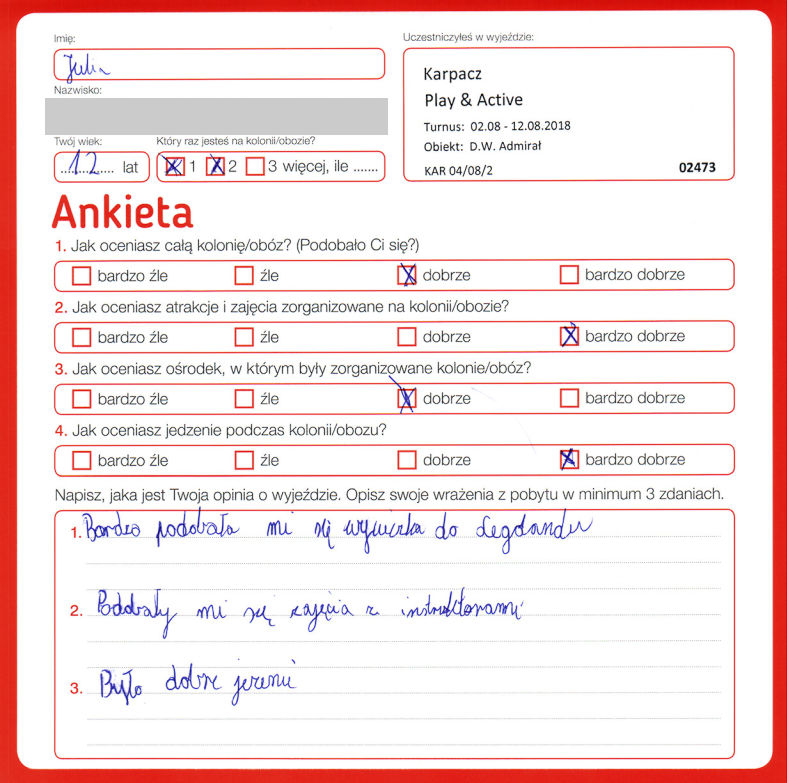 Imię:
Julia
Nazwisko:
Twój wiek:
12 lat
Który raz jesteś na kolonii/obozie?
1 2 3 więcej, ile .......
Uczestniczyłeś w wyjeździe:
Karpacz
Play & Active
Turnus: 02.08 - 12.08.2018
Obiekt: D.W. Admirał
KAR 04/08/2 02473
Ankieta
1. Jak oceniasz całą kolonię/obóz? (Podobało Ci się?)
bardzo źle źle dobrze bardzo dobrze
2. Jak oceniasz atrakcje i zajęcia zorganizowane na kolonii/obozie?
bardzo źle źle dobrze bardzo dobrze
3. Jak oceniasz ośrodek, w którym były zorganizowane kolonie/obóz?
bardzo źle źle dobrze bardzo dobrze
4. Jak oceniasz jedzenie podczas kolonii/obozu?
bardzo źle źle dobrze bardzo dobrze
Napisz, jaka jest Twoja opinia o wyjeździe. Opisz swoje wrażenia z pobytu w minimum 3 zdaniach.
1. Bardzo podobała mi się do
2. mi się zajęcia z instruktorami
3. Było dobre